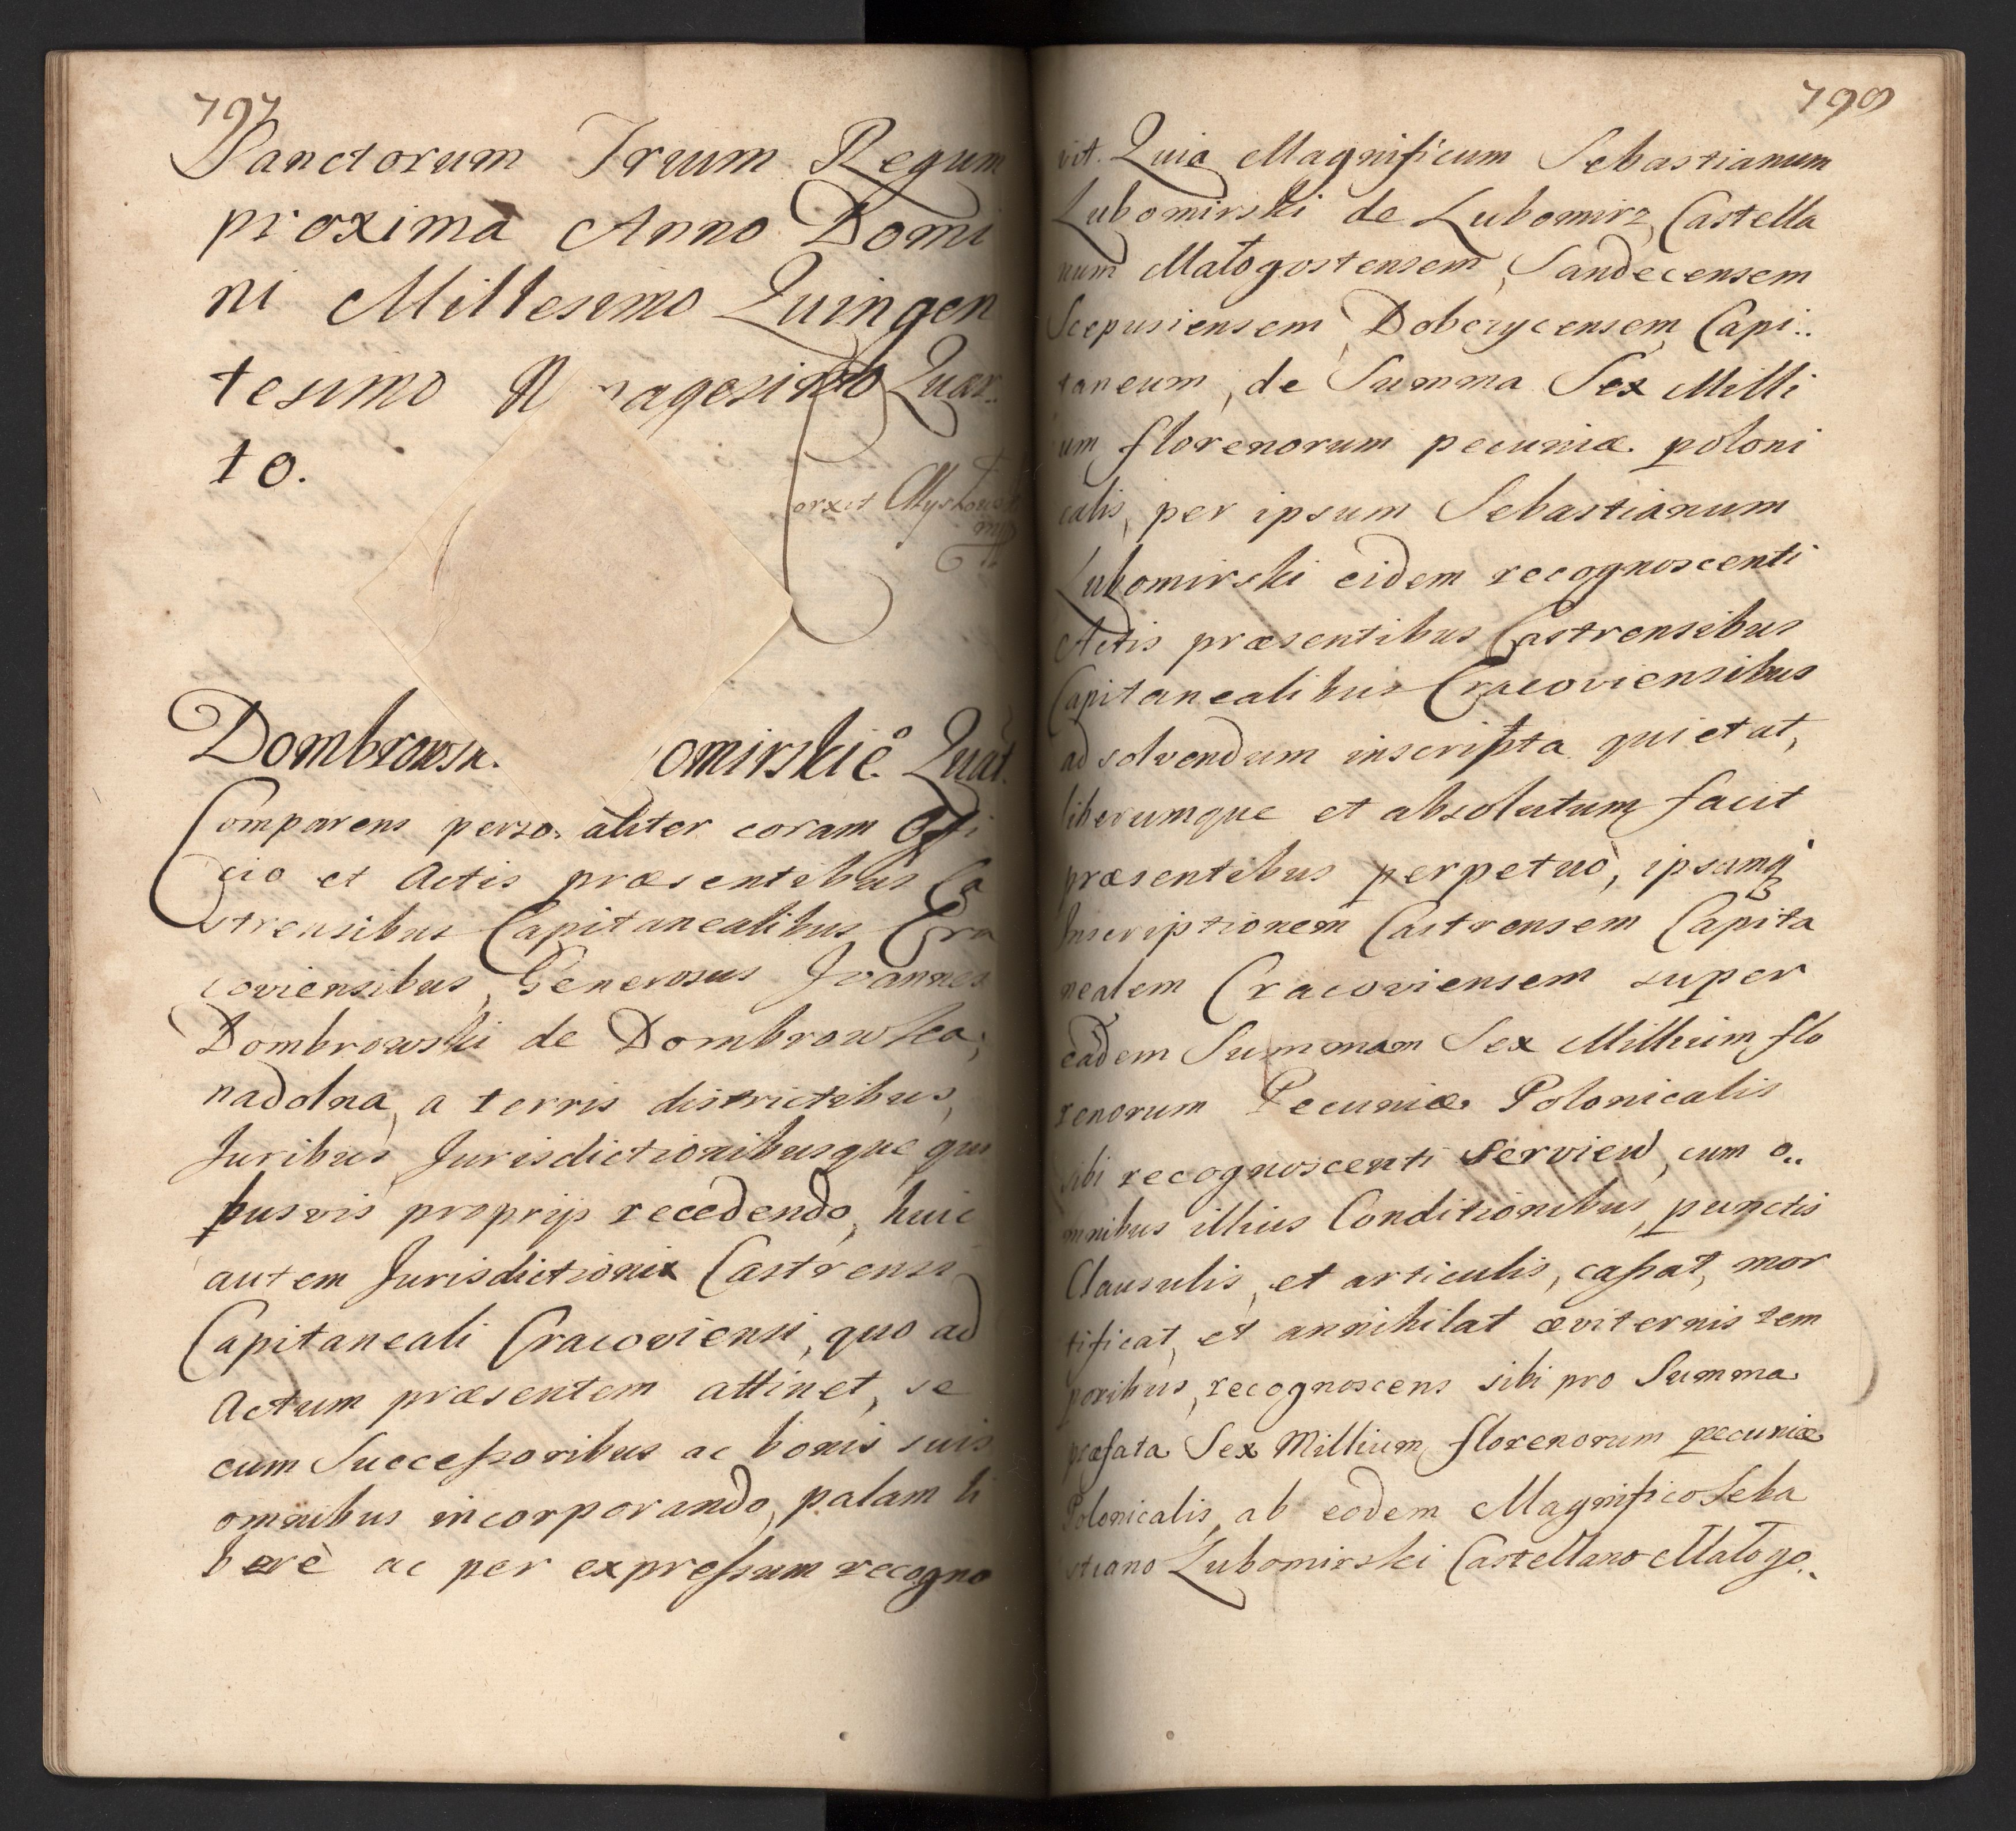 797
Sanctorum Trium Regum
proxima Anno Domi
ni Millesimo Quingen
tesimo N nagesimo Quar..
to.
orxit Myszkows
mp
Dombrowsk. omirskie Quat.
Comparens perso aliter coram Offi
cio et Actis præsentibus Ca
strensibus Capitanealibus Cra
coviensibus, Generosus Joannes
Dombrowski de Dombrowka,
nadolna, a terris districtibus,
Juribus Jurisdictionibusque qui
busvis proprijs recedendo, huic
autem Jurisdictioni Castrensi
Capitaneali Cracoviensi, quo ad
Actum præsentem attinet, se
cum Successoribus ac bonis suis
omnibus incorporando, palam li
berè ac per expressum recogno
798
vit. Quia Magnificum Sebastianum
Lubomirski de Lubomirz, Castella
num Małogostensem, Sandecensem
Scepusiensem, Dobczycensem Capi..
taneum, de Summa Sex Milli
um florenorum pecuniæ poloni
calis, per ipsum Sebastianum
Lubomirski eidem recognoscenti
Actis præsentibus Castrensibus
Capitanealibus Cracoviensibus
ad solvendum inscripta quietat,
liberumque et absolutum facit
præsentibus perpetuò, ipsamq
Inscriptionem Castrensem Capita
nealem Cracoviensem super
eadem Summam Sex Millium flo
renorum Pecuniæ Polonicalis
sibi recognoscenti serview, cum o..
mnibus illius Conditionibus, punctis
Clausulis, et articulis, cassat, mor
tificat, et annihilat æviternis tem
poribus, recognoscens sibi pro Summa
præfata Sex Millium florenorum pecuniæ
Polonicalis, ab eodem Magnifico Seba
stiano Lubomirski Castellano Małogo..